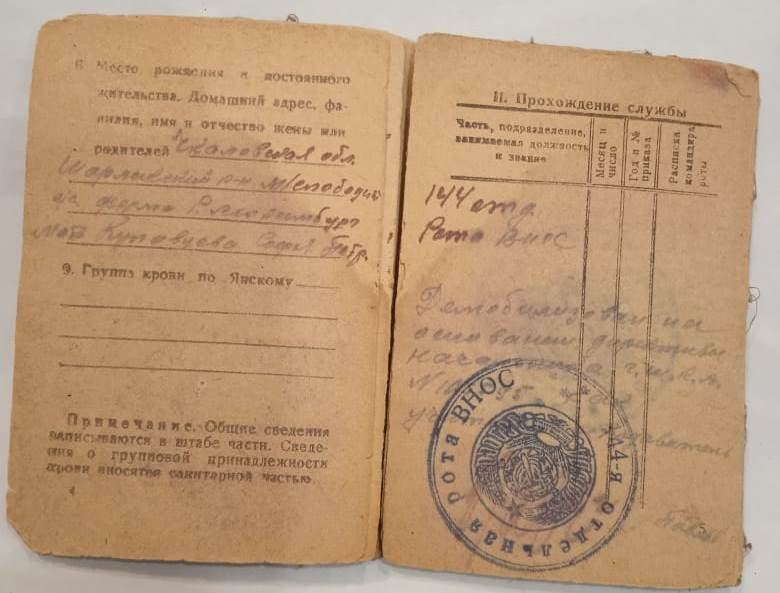 8 Место рождения и постоянного
жительства. Домашний адрес, фа-
милия, имя и отчество жены или
родителей Чкаловская обл.
Шарлыкский р-н
ферма Р. Люксембург
Мать Софья Петр.
9. Группа крови по Янскому
Примечание. Общие сведения
записываются в штабе части. Сведе-
ния о групповой принадлежности
крови вносятся санитарной частью.
4
II. Прохождение службы
Часть, подразделение,
занимаемая должность
и звание
Месяц и
число
Год и №
приказа
Расписка
командира
роты
144 отд.
Рота ВНОС
Демобилизован на
основании директивы
начальника
144-я отдельная рота ВНОС